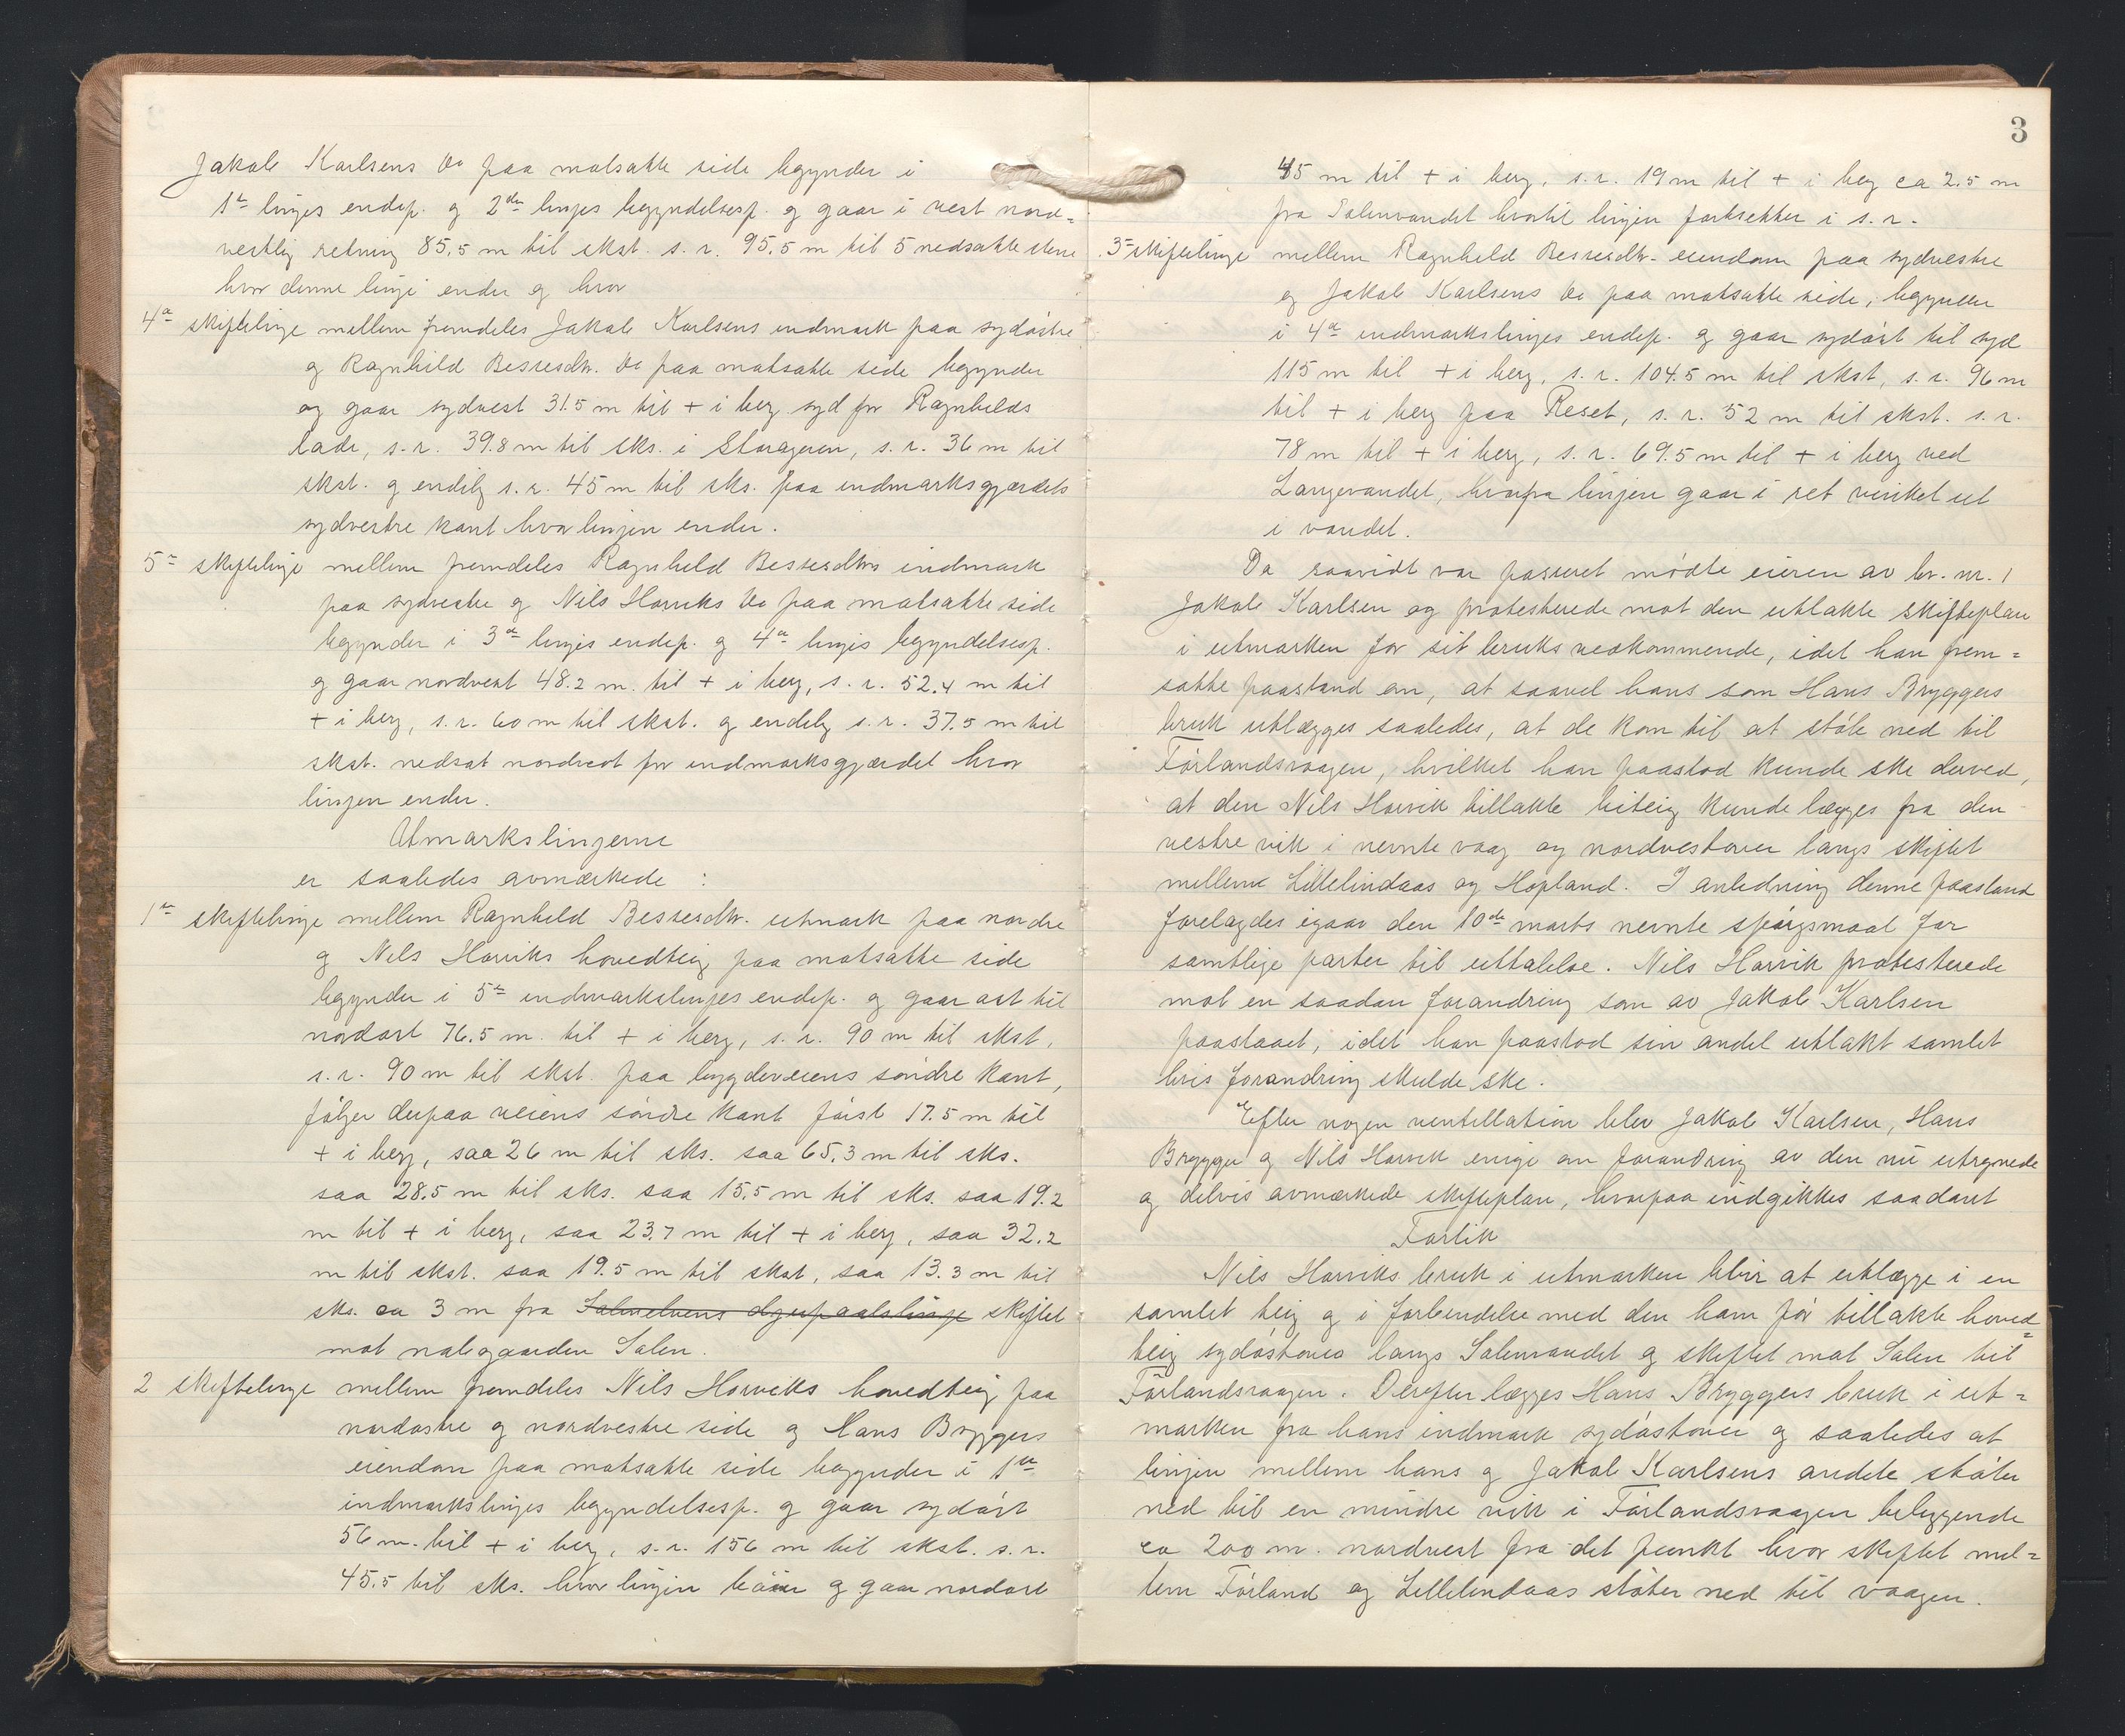 Jakob Karlsens do paa motsatte side begynder i
1ste linjes endep. og 2den linjes begyndelsesp. og gaar i vest nord=
vestlig retning 85,5 m til skst. s. r. 95,5 m til 5 nedsatte stene
hvor denne linje ender og hvor
4de skiftelinje mellem fremdeles Jakob Karlsens indmark paa sydøstre
og Ragnhild Bessesdtr. do paa motsatte side begynder
og gaar sydvest 31.5 m til + i berg syd for Ragnhilds
lade, s. r. 39.8 m til sks. i Storageren, s. r. 36 m til
skst. og endelig s. r. 45 m til sks. paa indmarksgjærdets
sydvestre kant hvor linjen ender.
5te skiftelinje mellem fremdeles Ragnhild Bessesdtrs indmark
paa sydvestre og Nils Horviks do paa motsatte side
begynder i 3die linjes endep. og 4de linjes begyndelsesp.
og gaar nordvest 48.2 m. til + i berg, s. r. 52.4 m til
+ i berg, s. r. 60 m til skst. og endelig s. r. 37.5 m til
skst. nedsat nordvest for indmarksgjærdet hvor
linjen ender.
Utmarkslinjerne
er saaledes avmærkede :
1ste skiftelinje mellem Ragnhild Bessesdtr. utmark paa nordre
og Nils Horviks hovedteig paa motsatte side
begynder i 5te indmarkslinjes endep. og gaar øst til
nordøst 76.5 m. til + i berg, s. r. 90 m til skst,
s. r. 90 m til skst. paa bygdeveiens søndre kant,
følger derpaa veiens søndre kant først 17.5 m til
+ i berg, saa 26 m til sks. saa 65.3 m til sks.
saa 28.5 m til sks. saa 15,5 m til sks. saa 19.2
m til + i berg, saa 23.7 m til + i berg, saa 32.2
m til skst. saa 19.5 m til skst, saa 13.3 m til
sks. ca 3 m fra skiftet
mot nabogaarden Salen.
2 skiftelinje mellem fremdeles Nils Horviks hovedteig paa
nordøstre og nordvestre side og Hans Bryggers
eiendom paa motsatte side begynder i 1ste
indmarkslinjes begyndelsesp. og gaar sydøst
56 m. til + i berg, s. r. 156 m til skst. s. r.
45.5 til sks. hvor linjen bøier og gaar nordøst
3
45 m til + i berg, s. r. 19 m til + i berg ca 2.5 m
fra Salenvandet hvortil linjen fortsetter i s. r.
3die skiftelinje mellem Ragnhild Bessesdtr. eiendom paa sydvestre
og Jakob Karlsens do paa motsatte side, begynder
i 4de indmarkslinjes endep. og gaar sydøst til syd
115 m til + i berg, s. r. 104.5 m til skst, s. r. 96 m
til + i berg paa Reset, s. r. 52 m til skst. s. r.
78 m til + i berg, s. r. 69.5 m til + i berg ved
Langevandet, hvorfra linjen gaar i ret vinkel ut
i vandet.
Da saavidt var passeret mødte eieren av br. nr. 1
Jakob Karlsen og protesterede mot den utlakte skifteplan
i utmarken for sit bruks vedkommende, idet han frem=
satte paastand om, at saavel hans som Hans Bryggers
bruk utlægges saaledes, at de kom til at støte ned til
Førlandsvaagen, hvilket han paastod kunde ske derved,
at den Nils Horvik tillakte biteig kunde lægges fra den
vestre vik i nevnte vaag og nordvestover langs skiftet
mellem Lillelindaas og Hopland. I anledning denne paastand
forelagdes igaar den 10de marts nevnte spørgsmaal for
samtlige parter til uttalelse. Nils Horvik protesterede
mot en saadan forandring som av Jakob Karlsen
paastaaet, idet han paastod sin andel utlakt samlet
hvis forandring skulde ske.
Efter nogen ventillation blev Jakob Karlsen, Hans
Brygger og Nils Horvik enige om forandring av den nu utregnede
og delvis avmærkede skifteplan, hvorpaa indgikkes saadant
Forlik
Nils Horviks bruk i utmarken blir at utlægge i en
samlet teig og i forbindelse med den ham før tillakte hoved=
teig sydøstover langs Salenvandet og skiftet mot Salen til
Førlandsvaagen. Derefter lægges Hans Bryggers bruk i ut=
marken fra hans indmark sydøstover og saaledes at
linjen mellem hans og Jakob Karlsens andele støter
ned til en mindre vik i Førlandsvaagen beliggende
ca 200 m. nordvest fra det punkt hvor skiftet mel=
lem Førland og Lillelindaas støter ned til vaagen.